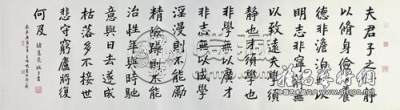 夫君子之行靜
以脩身儉以養
德非澹泊無以
明志非寧靜無
以致遠夫學須
靜也才須學也
非學無以廣才
非志無以成學
淫漫則不能勵
精險躁則不能
治性年與時馳
意與日去遂成
枯落多不接世
悲守窮廬將復
何及